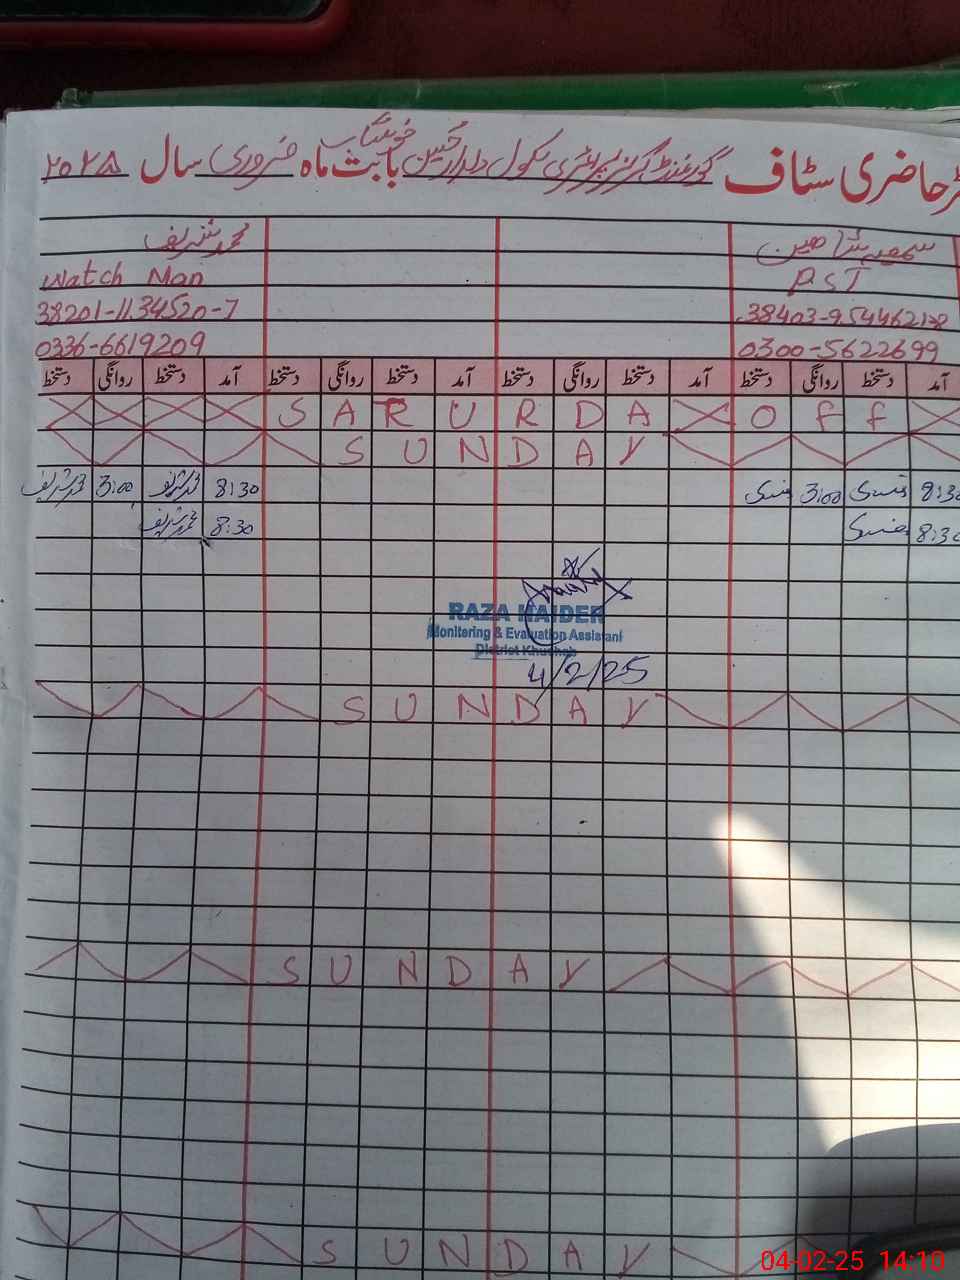 رحاضری سٹاف گورنمنٹ گرلز پرائمری سکول دلدار حسین خوشاب بابت ماہ فروری سال ۲۰۲۵
سمعیہ شاہین
محمد شریف
PST
Watch Man
38403-9544621-8
38201-1134520-7
0300-5622699
0336-6619209
آمد دستخط روانگی دستخط آمد دستخط روانگی دستخط آمد دستخط روانگی دستخط آمد دستخط روانگی دستخط
S A R U R D A O f f
S U N D A Y
8:30 3:00 8:30 محمد شریف 3:00 محمد شریف
8:30 8:30 محمد شریف
RAZA HAIDER
Monitoring & Evaluation Assistant
District Khushab
4/2/25
S U N D A Y
S U N D A Y
S U N D A Y
04-02-25 14:10